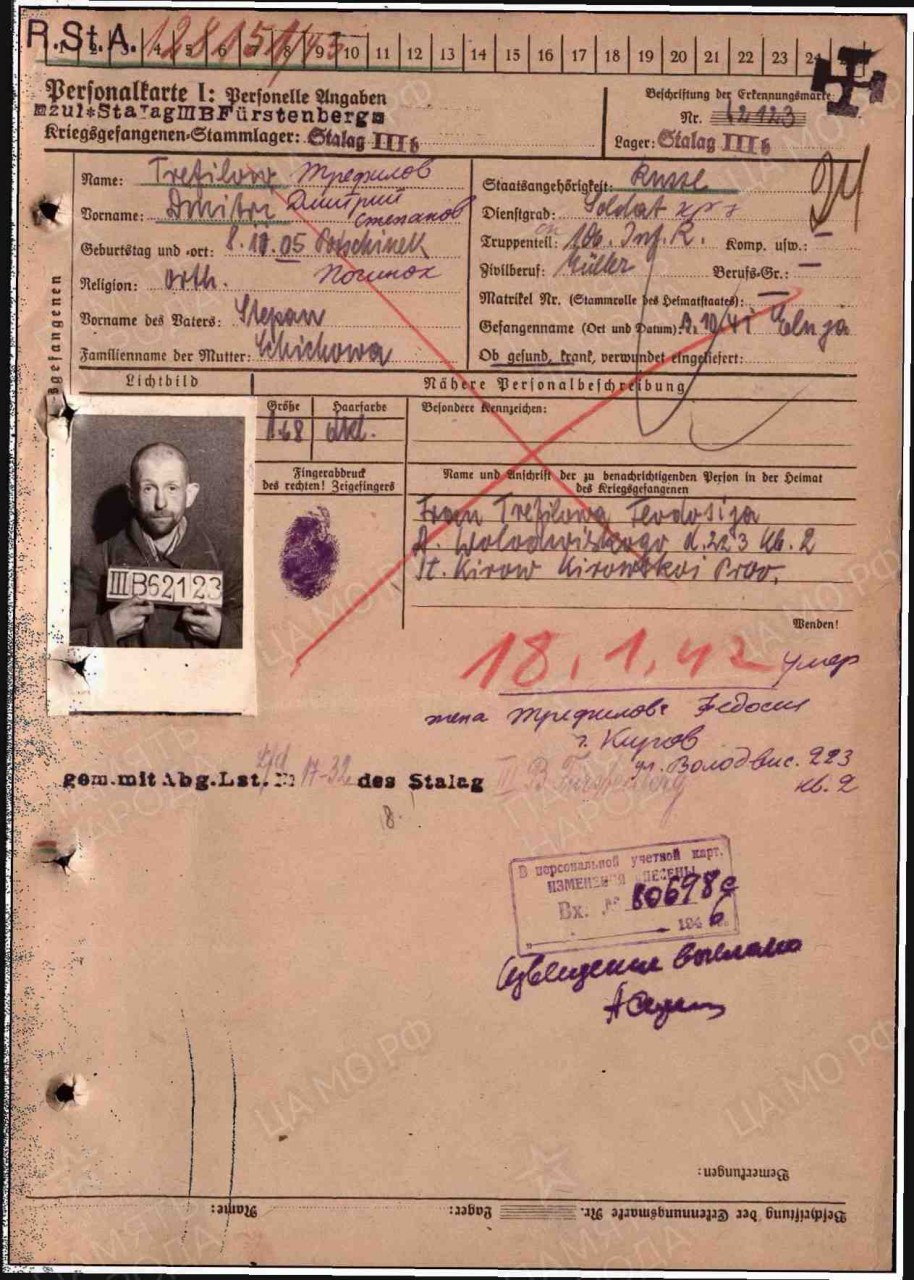 R.St.A. 4 5 6 7 8 9 10 11 12 13 14 15 16 17 18 19 20 21 22 23 24
Personalkarte I: Personelle Angaben
Beschriftung der Erkennungsmarke
StalagIIIBFürstenberg
Nr. 62123
Kriegsgefangenen-Stammlager: Stalag IIIb
Lager: Stalag IIIb
Name: Trefilow Трефилов
Vorname: Dmitri Дмитрий Степанов
Geburtstag und -ort: 8.10.05 Potschinek
Починок
Religion: orth.
Vorname des Vaters: Stepan
Familienname der Mutter: Schichowa
Staatsangehörigkeit: Russe
24
Dienstgrad: Soldat
Truppenteil: 106. Inf. R. Komp. usw.: —
Zivilberuf: Müller Berufs-Gr.: —
Matrikel Nr. (Stammrolle des Heimatstaates): —
Gefangenname (Ort und Datum): 9.10.41 Elnja
Ob gesund, krank, verwundet eingeliefert:
gefangenen
Lichtbild
Nähere Personalbeschreibung
Größe Haarfarbe Besondere Kennzeichen:
1.68 dkl.
Fingerabdruck
des rechten! Zeigefingers
Name und Anschrift der zu benachrichtigenden Person in der Heimat
des Kriegsgefangenen
Frau Trefilowa Feodosija
d. 223 kb. 2
St. Kirow Kirowskoi Prov.
IIIB62123
Wenden!
18.1.42 умер
жена Трефилова Федосия
г. Киров
ул. Володвис. 223
кв. 2
gem.mit Abg.Lst. 17-32 des Stalag III B Fürstenberg
8.
В персональной учетной карт.
ИЗМЕНЕНИЯ ВНЕСЕНЫ
Вх. № 80698с
1946
Извещение выслано
Bemerkungen:
Beschriftung der Erkennungsmarke Nr. Lager: Name:
ЦАМО РФ
ПАМЯТЬ НАРОДА